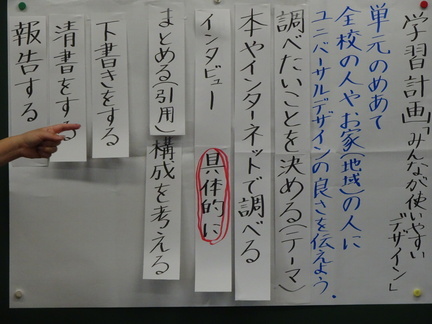 学習計画「みんなが使いやすい
デザイン」
単元のめあて
全校の人やお家(地域)の人に
ユニバーサルデザインの良さを伝えよう。
調べたいことを決める(テーマ)
本やインターネットで調べる
インタビュー 具体的に
まとめる(引用)構成を考える
下書きをする
清書をする
報告する